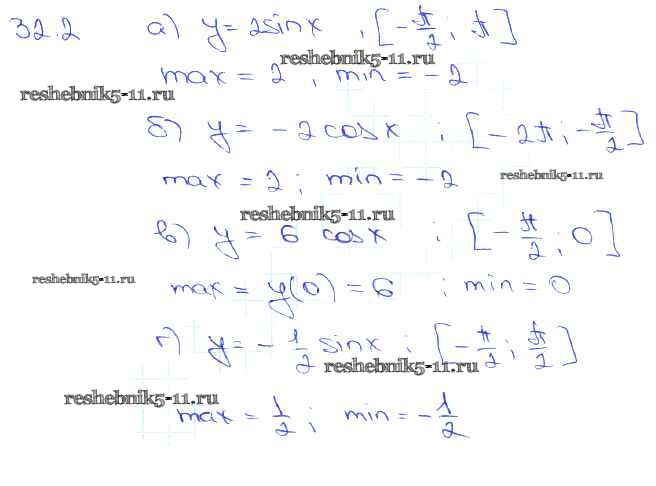 32.2 а) y = 2sinx , [-π/2 ; π]
reshebnik5-11.ru
max = 2 , min = -2
reshebnik5-11.ru
б) y = -2cosx ; [-2π ; -π/2]
max = 2 ; min = -2 reshebnik5-11.ru
reshebnik5-11.ru
в) y = 6 cosx ; [-π/2 ; 0]
reshebnik5-11.ru max = y(0) = 6 ; min = 0
г) y = -1/2 sinx ; [-π/2 ; π/2]
reshebnik5-11.ru
reshebnik5-11.ru
max = 1/2 ; min = -1/2